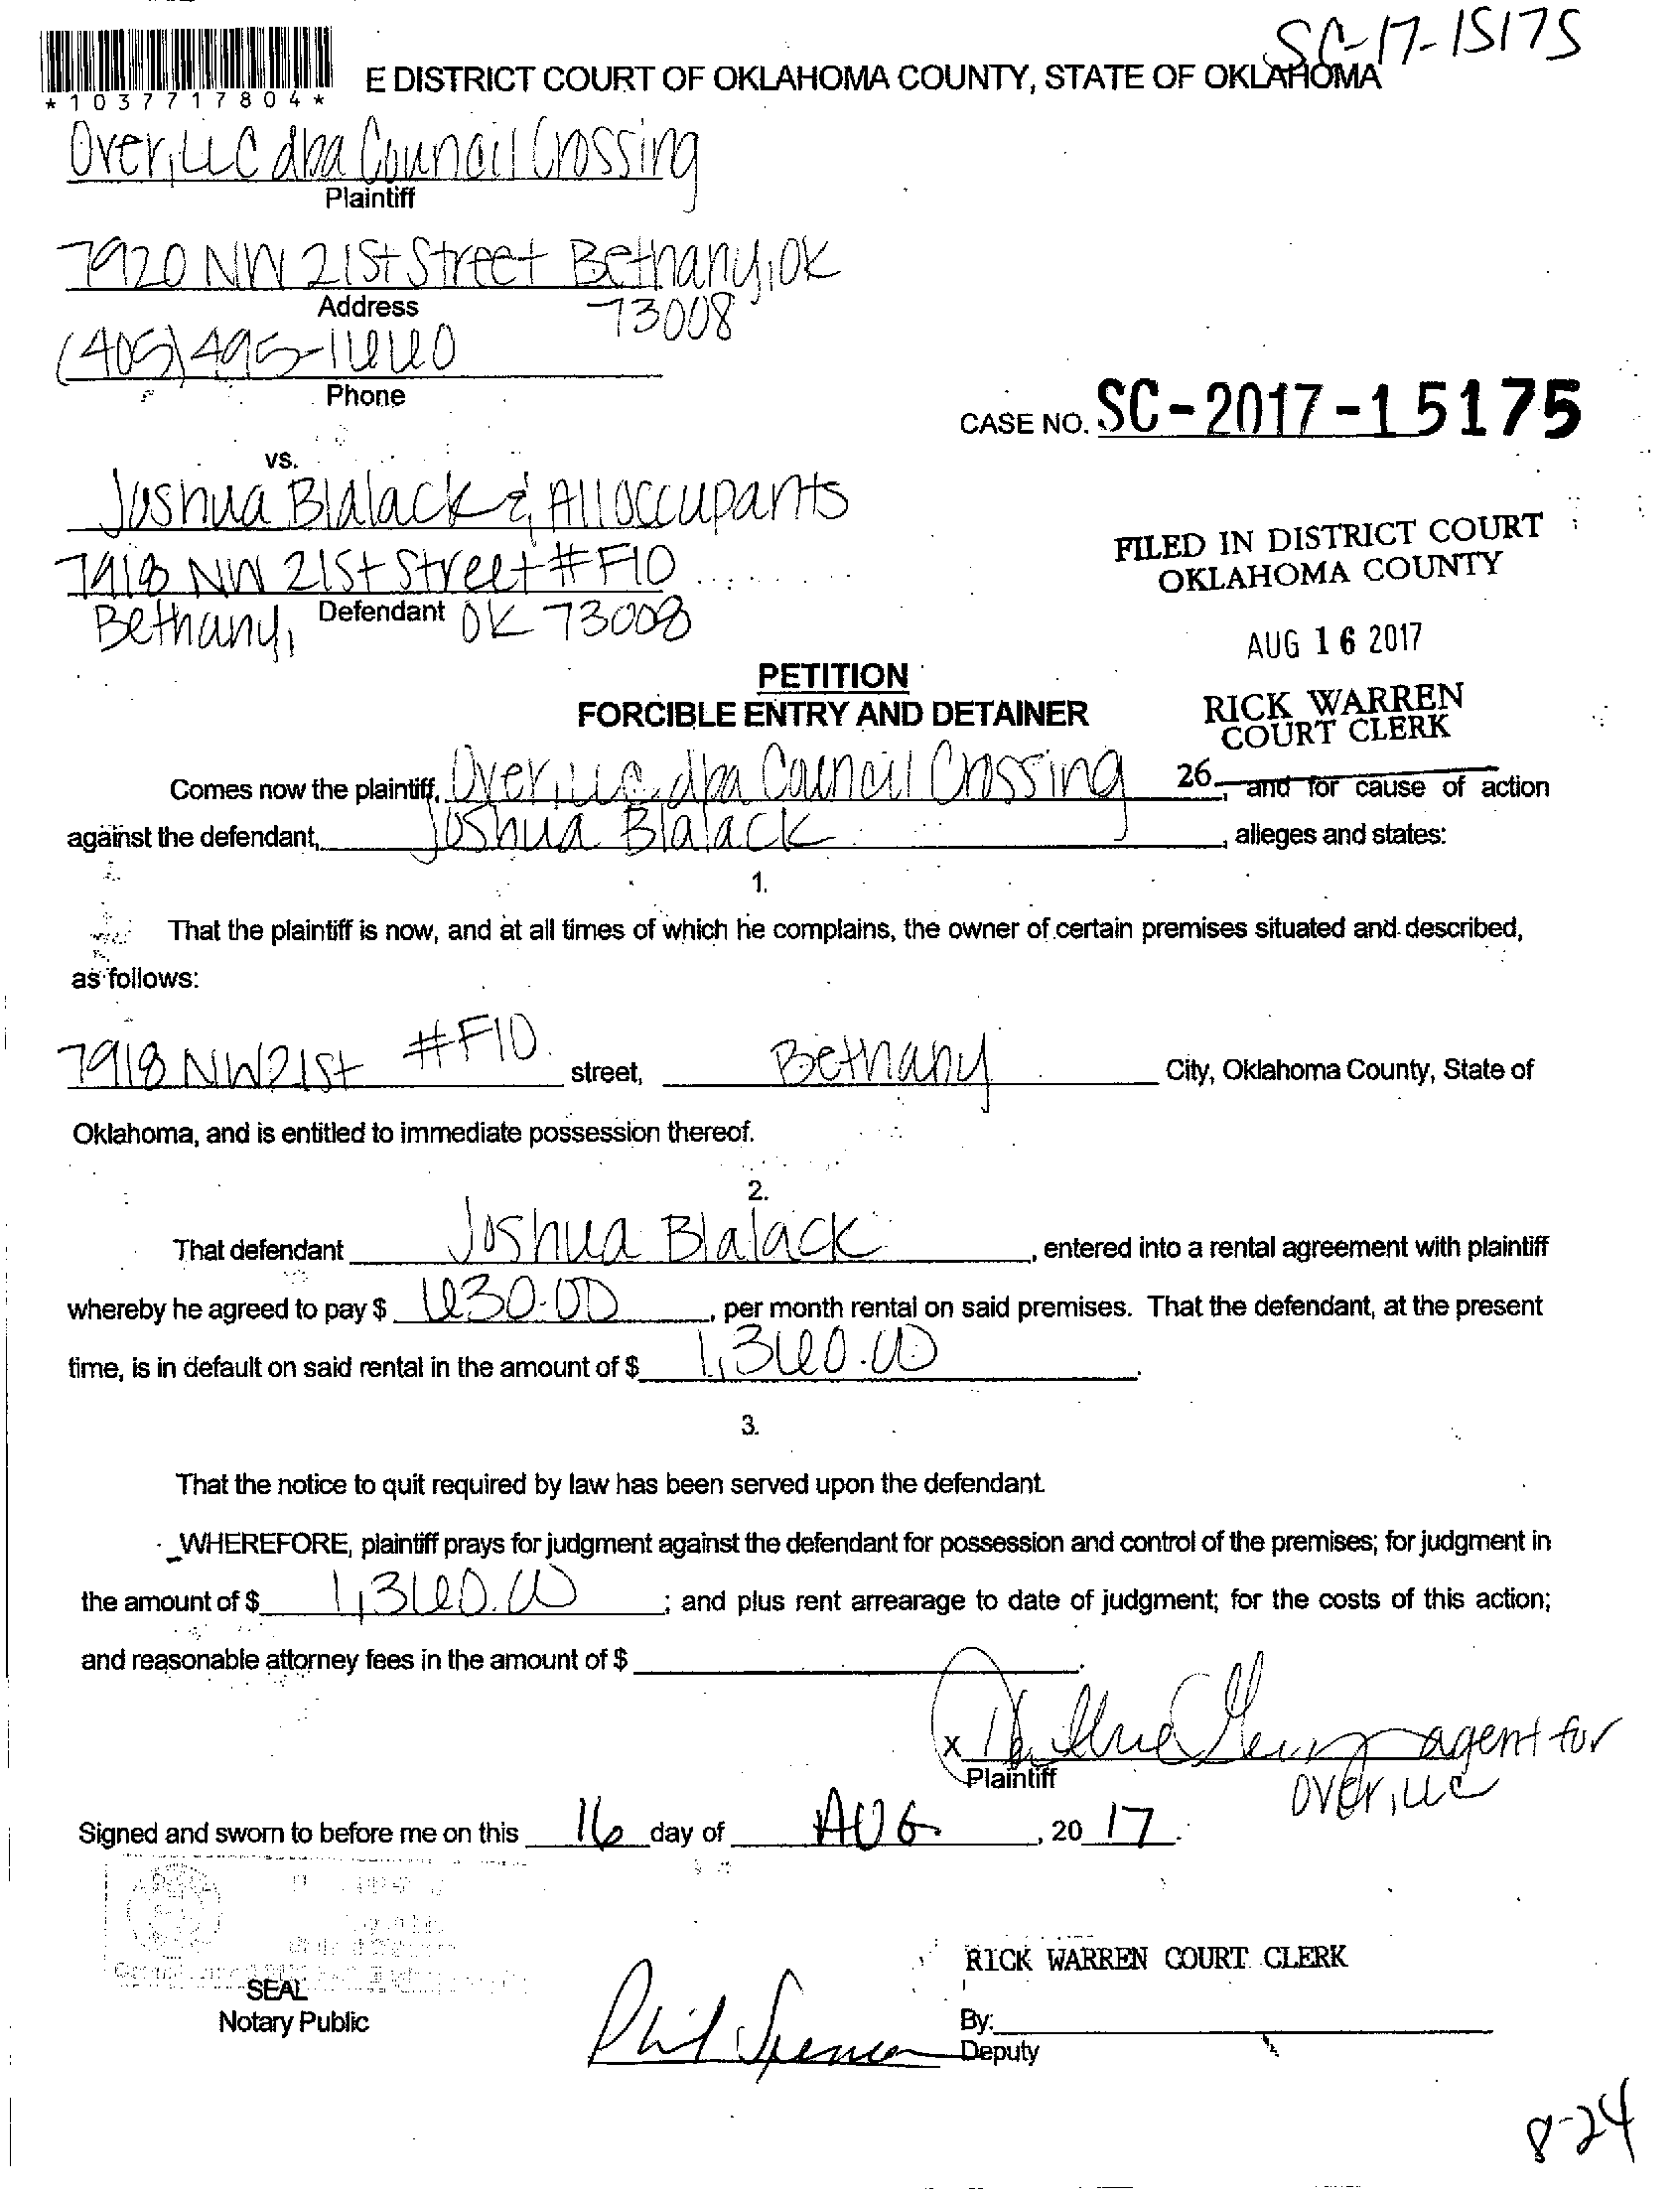 SC-17-15175
*1037717804*
E DISTRICT COURT OF OKLAHOMA COUNTY, STATE OF OKLAHOMA
Over, LLC dba Council Crossing
Plaintiff
7920 NW 21st Street Bethany, OK
Address
73008
(405) 495-1660
Phone
CASE NO. SC-2017-15175
vs.
Joshua Blalack & All occupants
7918 NW 21st Street #F10
Bethany, Defendant OK 73008
FILED IN DISTRICT COURT
OKLAHOMA COUNTY
AUG 16 2017
RICK WARREN
COURT CLERK
26
PETITION
FORCIBLE ENTRY AND DETAINER
Comes now the plaintiff, Over, LLC dba Council Crossing, and for cause of action
against the defendant, Joshua Blalack, alleges and states:
1.
That the plaintiff is now, and at all times of which he complains, the owner of certain premises situated and described,
as follows:
7918 NW 21st #F10 street, Bethany City, Oklahoma County, State of
Oklahoma, and is entitled to immediate possession thereof.
2.
That defendant Joshua Blalack, entered into a rental agreement with plaintiff
whereby he agreed to pay $ 630.00, per month rental on said premises. That the defendant, at the present
time, is in default on said rental in the amount of $ 1,360.00.
3.
That the notice to quit required by law has been served upon the defendant.
WHEREFORE, plaintiff prays for judgment against the defendant for possession and control of the premises; for judgment in
the amount of $ 1,360.00; and plus rent arrearage to date of judgment; for the costs of this action;
and reasonable attorney fees in the amount of $
x agent for
Plaintiff Over, LLC
Signed and sworn to before me on this 16 day of AUG, 20 17.
RICK WARREN COURT CLERK
SEAL
Notary Public
Phil Spencer
By:
Deputy
8-24